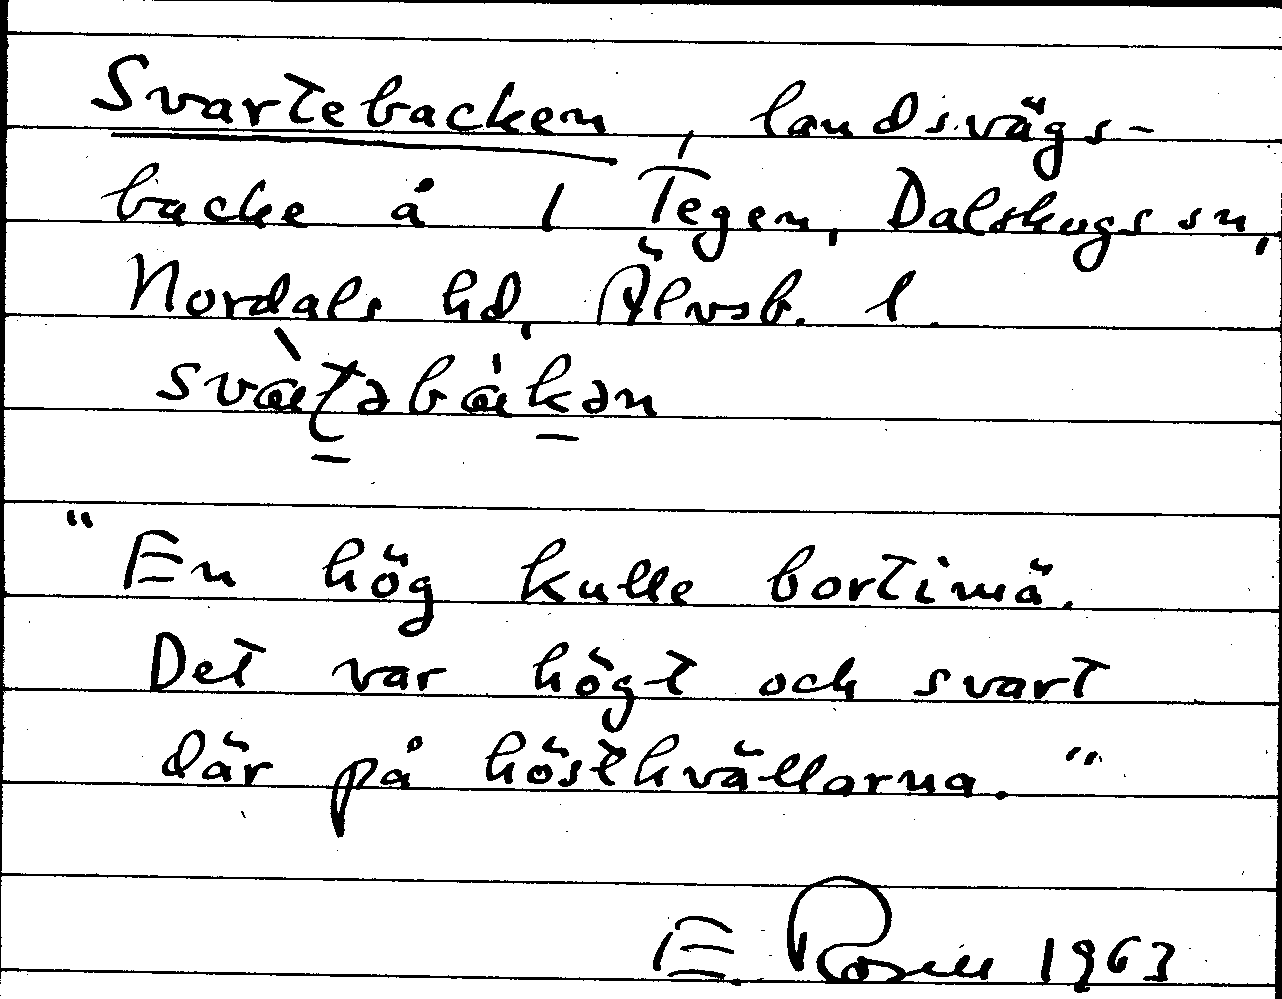 Svartebacken, landsvägs-
backe å 1 Tegen, Dalskogs sn,
Nordals hd, Älvsb. l.
svàʈəbákən
"En hög kulle bortimä.
Det var högt och svart
där på höstkvällarna."
E. Rosell 1963